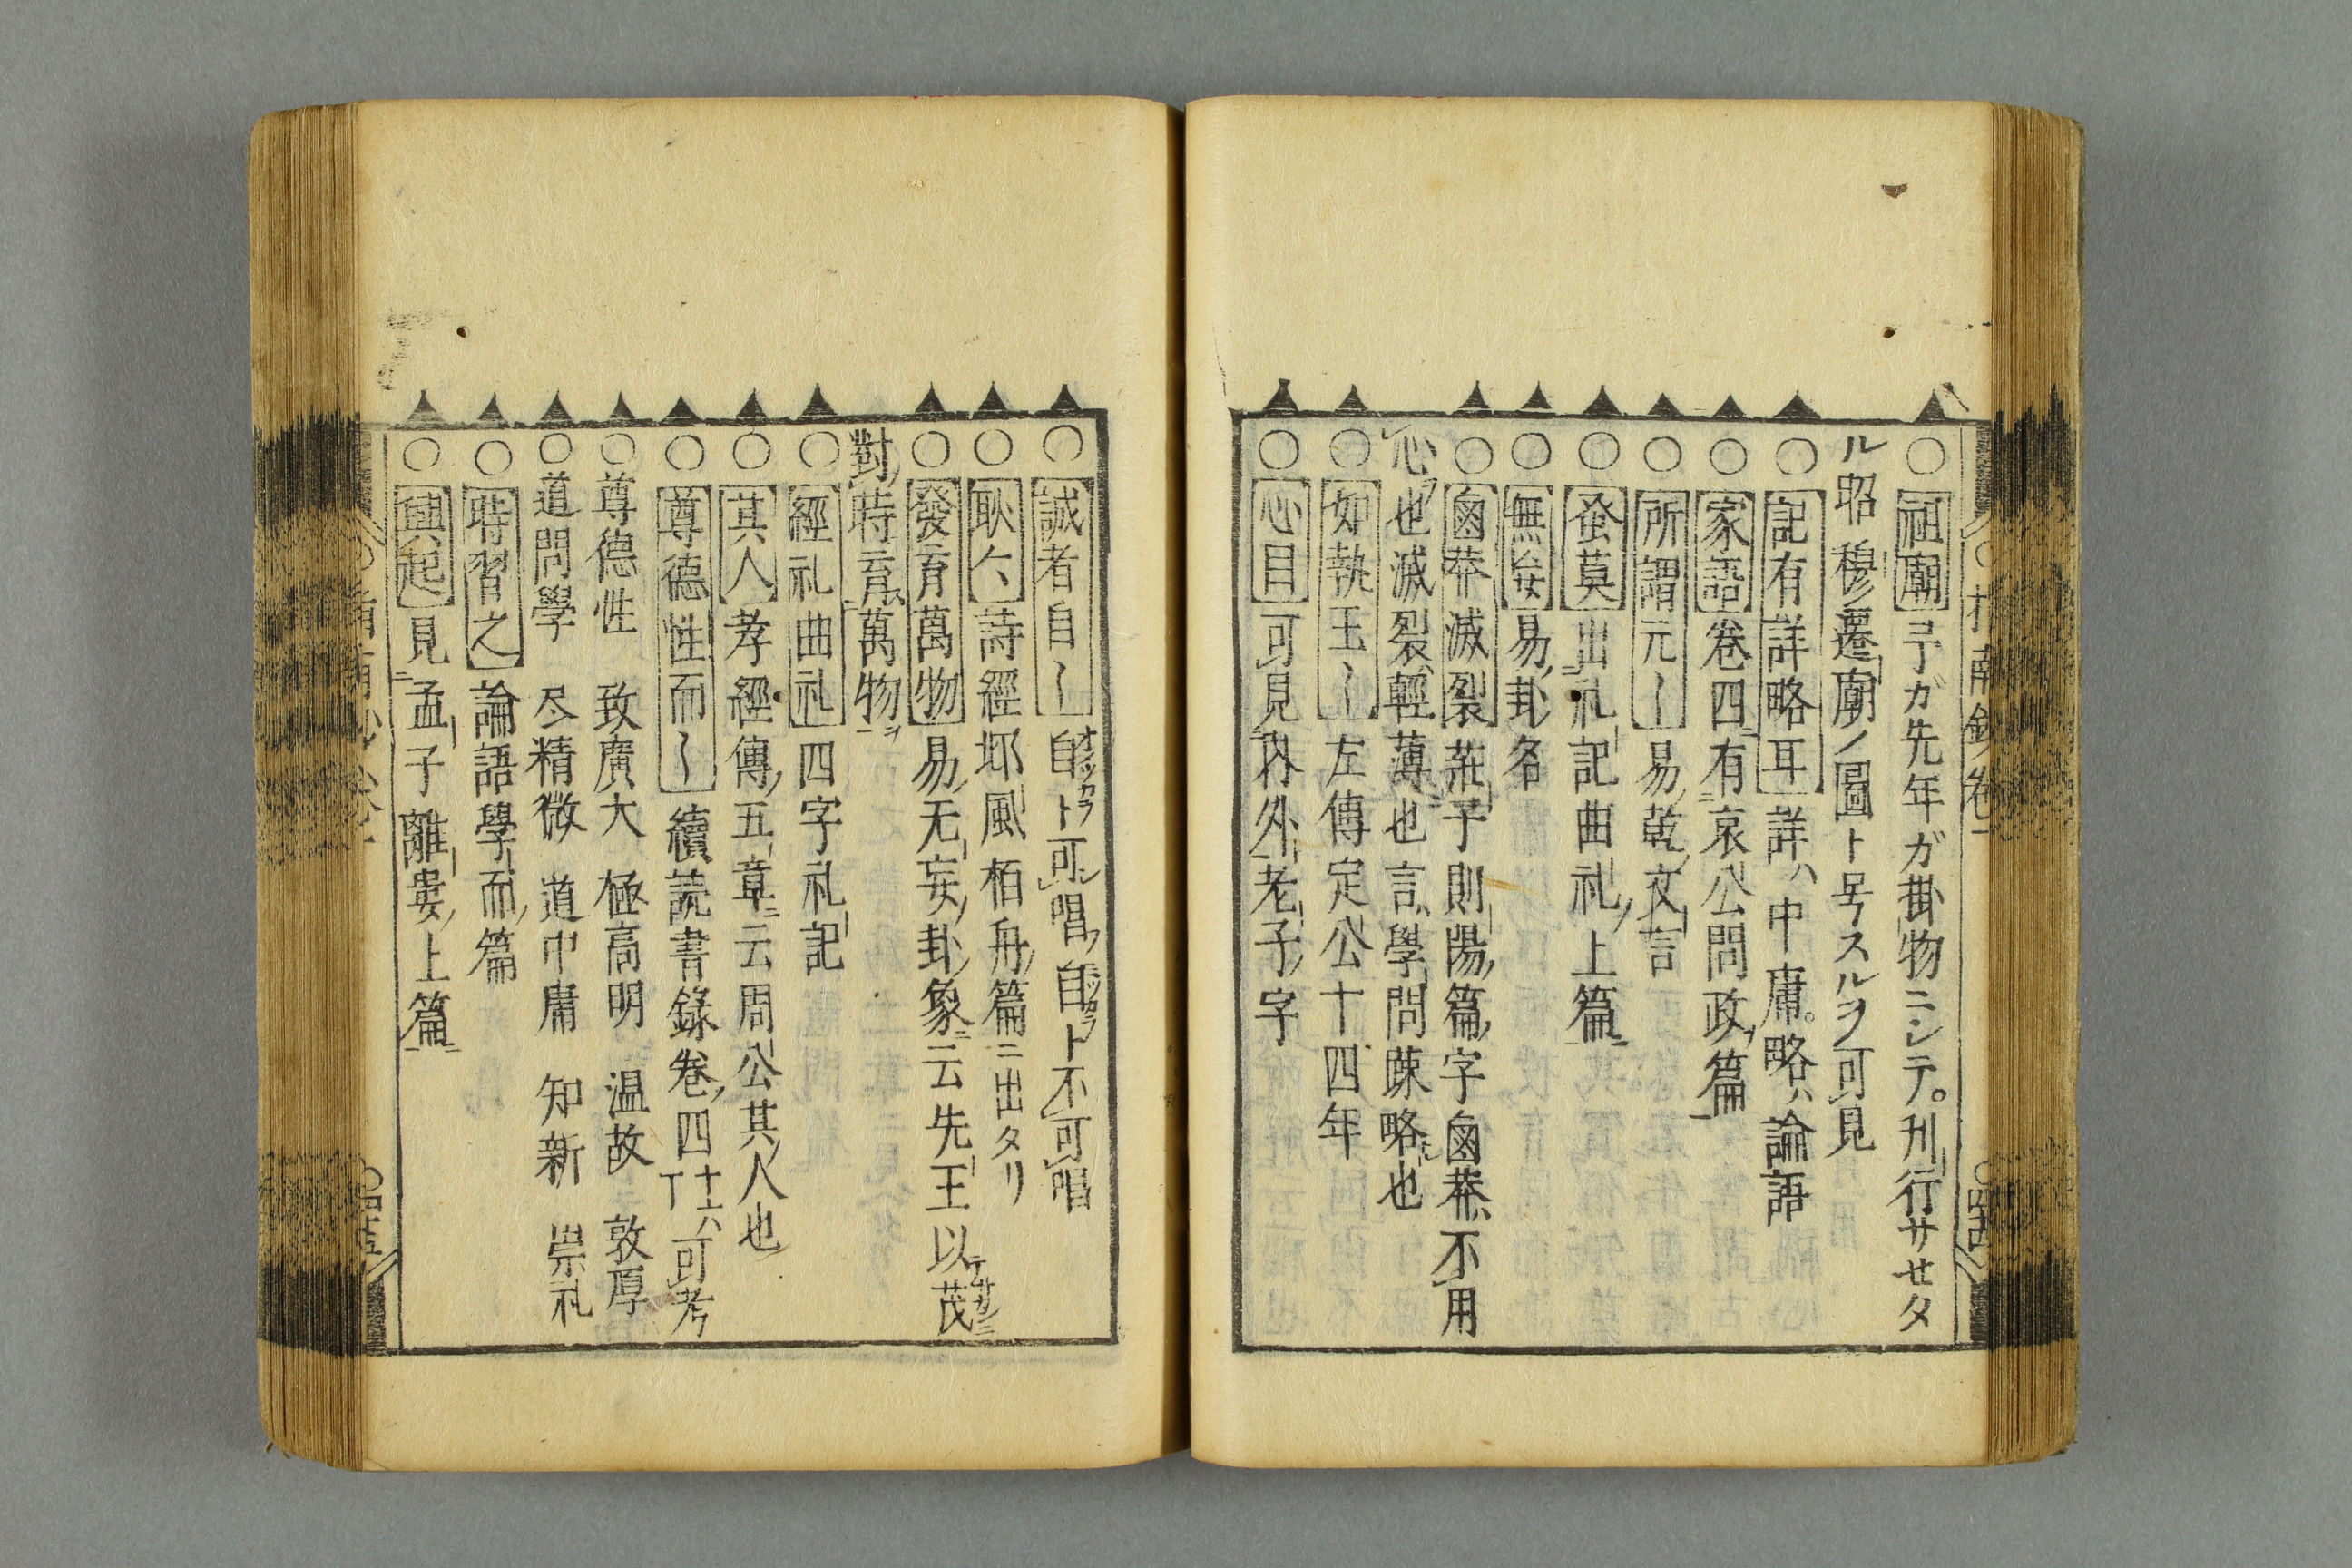 ○祖廟予ガ先年ガ掛物ニシテ。刋行サセタ
ル昭穆遷廟ノ圖ト号スルヲ可見
○記有詳略耳詳ハ中庸。略ハ論語
○家語卷四有哀公問政篇
○所謂元〱易乾文言
○蚤莫出礼記曲礼上篇
○無妄易卦名
○鹵莽滅裂莊子則陽篇字鹵莽不用
心也滅裂輕薄也言學問踈略也
○如執玉〱左傳定公十四年
○心目可見內外老子字
○誠者自〱自ト可唱自ト不可唱
○耿々詩經邶風栢舟篇ニ出タリ
○發育萬物易无妄卦象云先王以茂
對時育萬物
○經礼曲礼四字礼記
○其人孝經傳五章云周公其人也
○尊德性而〱續読書錄卷四十六丁可考
○尊德性 致廣大 極高明 温故 敦厚
○道問學 尽精微 道中庸 知新 崇礼
○時習之論語學而篇
○興起見孟子離婁上篇